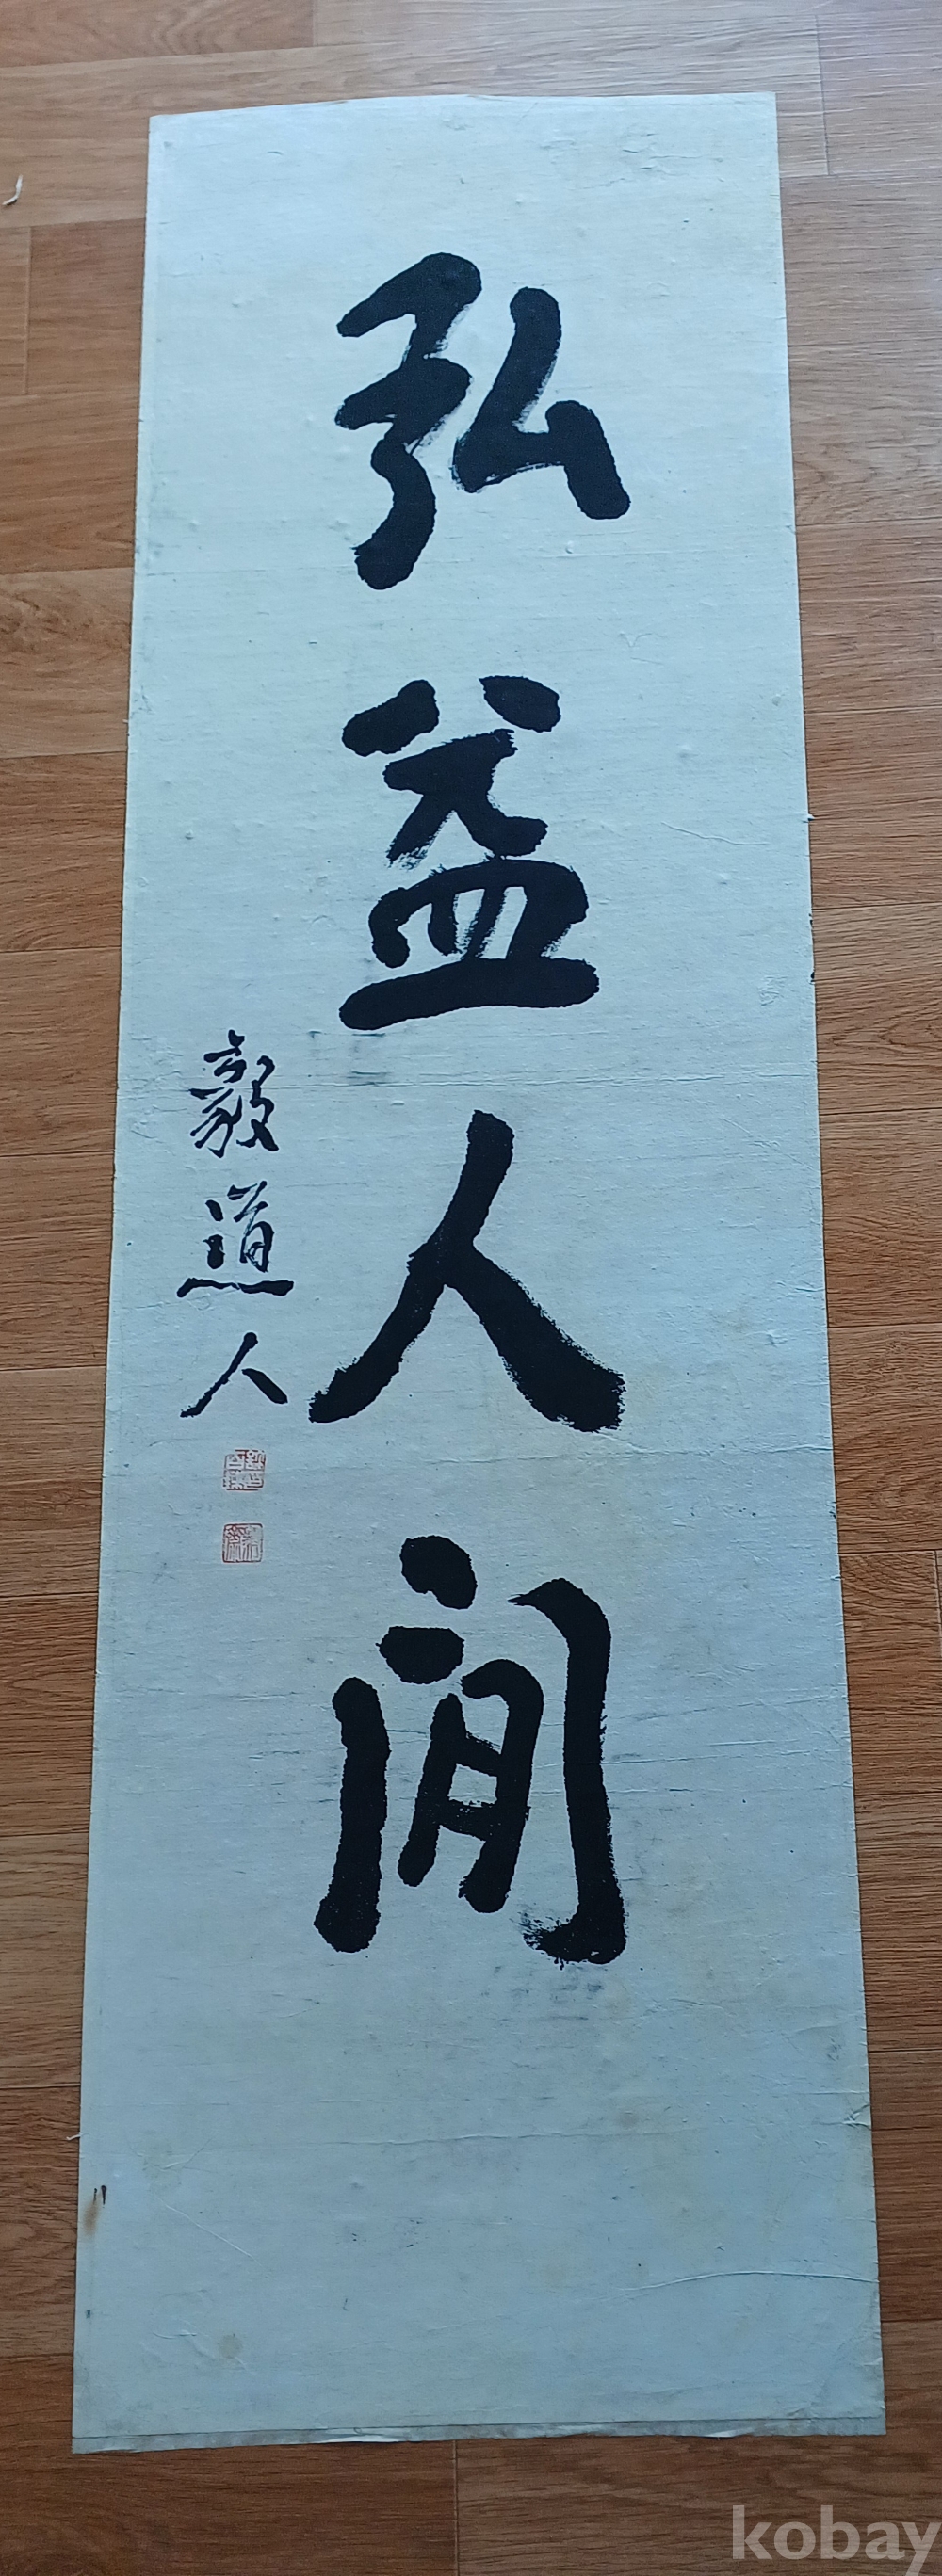 弘益人間
毅道人
kobay